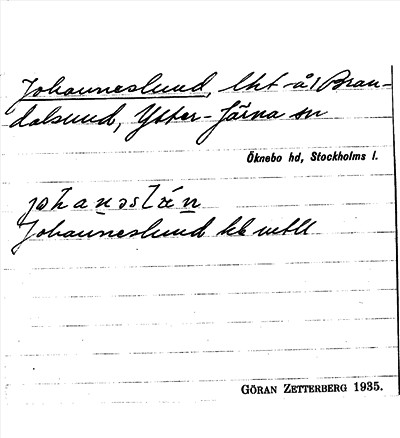 Johanneslund, lht å Bran-
dalsund, Ytter-Järna sn
Öknebo hd, Stockholms l.
Johanneslund
GÖRAN ZETTERBERG 1935.